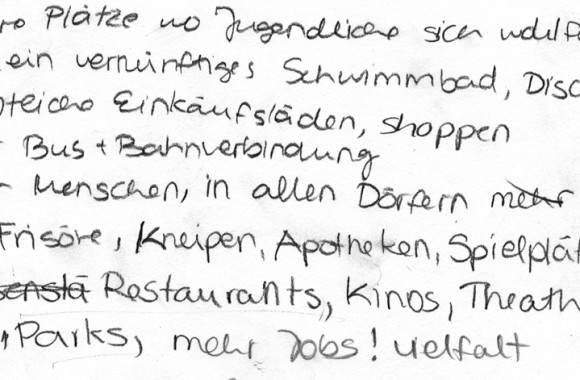 Plätze wo Jugendliche sich wohlf
ein vernünftiges Schwimmbad, Disc
Einkäufsläden, shoppen
Bus + Bahnverbindung
- Menschen, in allen Dörfern mehr
Frisöre, Kneipen, Apotheken, Spielplät
Restaurants, Kinos, Theath
, Parks, mehr Jobs! vielfalt